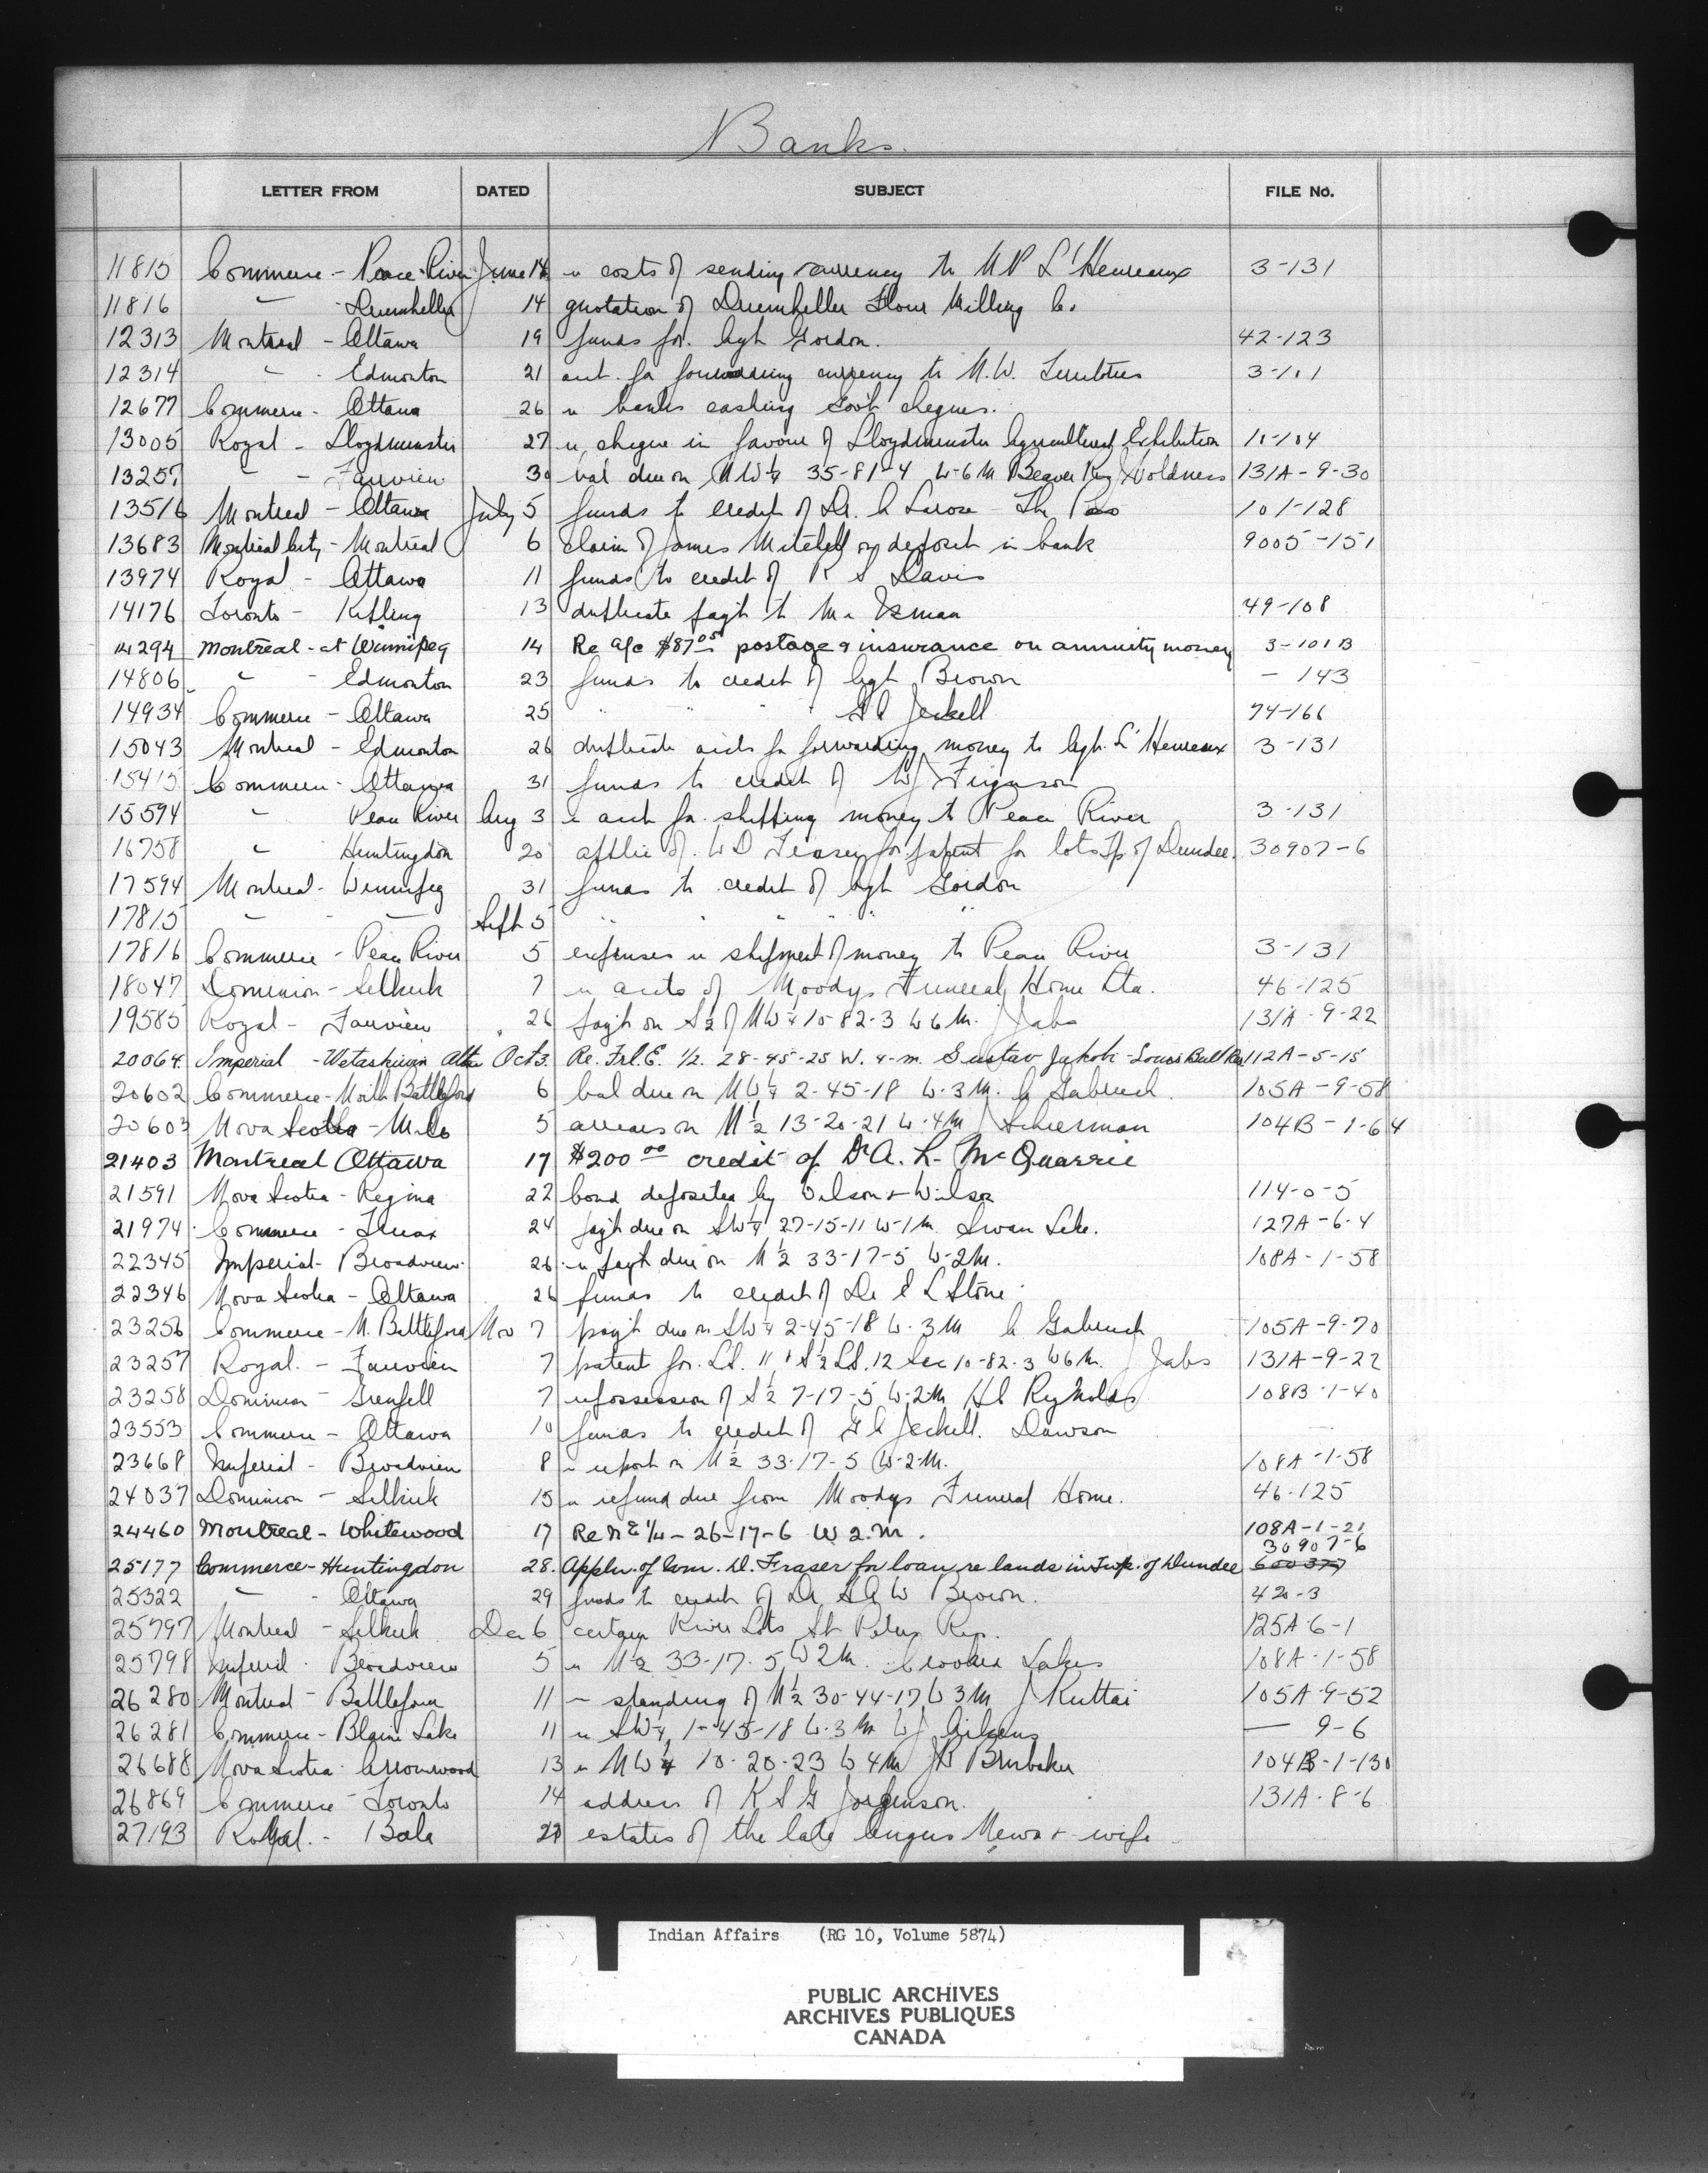 Banks.
LETTER FROM DATED SUBJECT FILE No.
11815 Commerce - Peace River June 14 re costs of sending currency to N P L'Heureux 3-131
11816 " - Drumheller 14 quotation of Drumheller Flour Milling Co.
12313 Montreal - Ottawa 19 funds for Agt Gordon. 42-123
12314 " - Edmonton 21 acct. for forwarding currency to N.W. Territories 3-101
12677 Commerce - Ottawa 26 re banks cashing Govt cheques.
13005 Royal - Lloydminster 27 re cheque in favour of Lloydminster Agricultural Exhibition 11-104
13257 " - Fairview 30 bal due on NW¼ 35-81-4 W-6M Beaver Holdness 131A-9-30
13516 Montreal - Ottawa July 5 funds to credit of Dr. A Larose - The Pas 101-128
13683 Montreal City - Montreal 6 claim of James Mitchell on deposit in bank 9005-151
13974 Royal - Ottawa 11 funds to credit of R S Davis
14176 Toronto - Kipling 13 duplicate payt to Mr Isman 49-108
14294 Montreal - at Winnipeg 14 Re a/c $87.05 postage & insurance on annuity money 3-101B
14806 " - Edmonton 23 funds to credit of Agt Brown - 143
14934 Commerce - Ottawa 25 " " " " G A Jeckell 74-166
15043 Montreal - Edmonton 26 duplicate accts for forwarding money to Agt. L'Heureux 3-131
15415 Commerce - Ottawa 31 funds to credit of W J Ferguson
15594 " Peace River Aug 3 re acct for shipping money to Peace River 3-131
16758 " Huntingdon 20 applic of W D for patent for lots Tp of Dundee. 30907-6
17594 Montreal - Winnipeg 31 funds to credit of Agt Gordon
17815 " - " Sept 5 " " " " "
17816 Commerce - Peace River 5 expenses re shipment of money to Peace River 3-131
18047 Dominion - Selkirk 7 re accts of Moodys Funeral Home Ltd. 46-125
19585 Royal - Fairview 26 payt on S½ of NW¼ 10-82-3 W6M. J Jabs 131A-9-22
20064 Imperial - Wetaskiwin Alta Oct 3. Re. Frl. E. 1/2. 28-45-25 W. 4-m. Gustav Jakobi - Louis Bull Res 112A-5-15
20602 Commerce - North Battleford 6 bal due on NW¼ 2-45-18 W.3M. A Gabruch 105A-9-58
20603 Nova Scotia - Milo 5 arrears on N½ 13-20-21 W.4M J Scheerman 104B-1-64
21403 Montreal Ottawa 17 $200.00 credit of Dr A. L. McQuarrie
21591 Nova Scotia - Regina 22 bond deposited by Wilson & Wilson 114-0-5
21974 Commerce - Truax 24 payt due on SW¼ 27-15-11 W-1M. Swan Lake. 127A-6-4
22345 Imperial - Broadview 26 re payt due on N½ 33-17-5 W-2M. 108A-1-58
22346 Nova Scotia - Ottawa 26 funds to credit of Dr E L Stone
23256 Commerce - N. Battleford Nov 7 payt due on SW¼ 2-45-18 W.3M A Gabruch 105A-9-70
23257 Royal. - Fairview 7 patent for LS. 11 & S½ LS. 12 Sec 10-82-3 W6M. J Jabs 131A-9-22
23258 Dominion - Grenfell 7 repossession of S½ 7-17-5 W-2M H C Reynolds 108B-1-40
23553 Commerce - Ottawa 10 funds to credit of G A Jeckell. Dawson
23668 Imperial - Broadview 8 re report on N½ 33-17-5 W-2-M. 108A-1-58
24037 Dominion - Selkirk 15 re refund due from Moodys Funeral Home. 46-125
24460 Montreal - Whitewood 17 Re NE 1/4 - 26-17-6 W 2.m. 108A-1-21
30907-6
25177 Commerce - Huntingdon 28. Appln. of Wm. D. Fraser for loan re lands in Twp. of Dundee 600377
25322 " - Ottawa 29 funds to credit of Dr G A W Brown. 42-3
25797 Montreal - Selkirk Dec 6 certain River Lots St Peters Res. 125A-6-1
25798 Imperial - Broadview 5 re N½ 33-17-5 W2M. Crooked Lakes 108A-1-58
26280 Montreal - Battleford 11 re standing of N½ 30-44-17 W3M J Kuttai 105A-9-52
26281 Commerce - Blaine Lake 11 re SW¼ 1-45-18 W.3M W J Aikens — 9-6
26688 Nova Scotia - Arrowwood 13 re NW¼ 10-20-23 W4M J R Brubaker 104B-1-130
26869 Commerce - Toronto 14 address of K S G Jorgenson. 131A-8-6
27193 Royal. - Bala 28 estates of the late Angus & wife
Indian Affairs (RG 10, Volume 5874)
PUBLIC ARCHIVES
ARCHIVES PUBLIQUES
CANADA